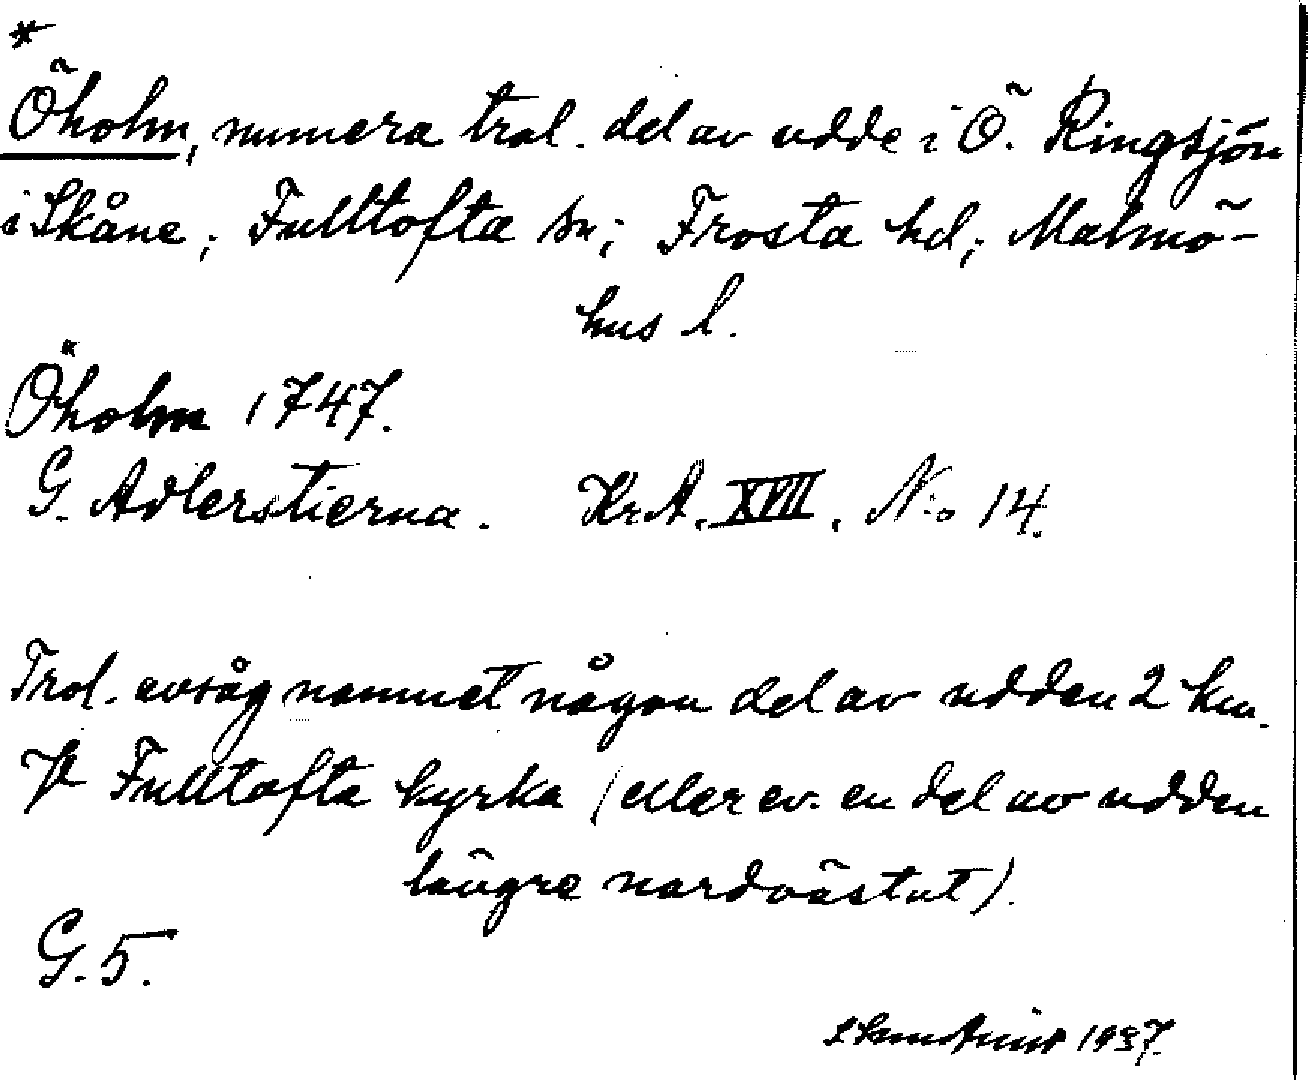 *
Öholm, numera trol. del av udde i Ö. Ringsjön
i Skåne; Fulltofta sn; Frosta hd; Malmö-
hus l.
Öholm 1747.
G. Adlerstierna. Kr.A. XVII. N:o 14.
Trol. avsåg namnet någon del av udden 2 km.
Fulltofta kyrka (eller ev. en del av udden
längre nordvästut).
G. 5.
1937.